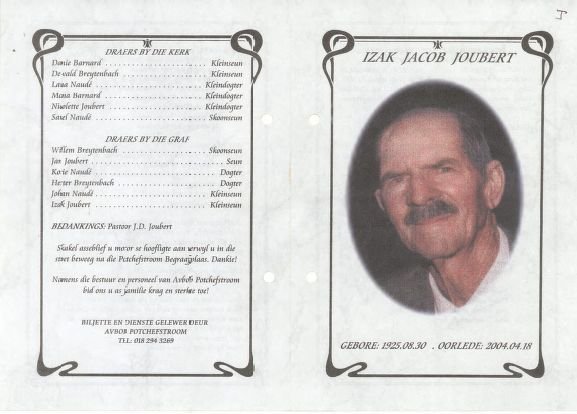 DRAERS BY DIE KERK
Danie Barnard .......................... Kleinseun
De-wald Breytenbach .................. Kleinseun
Lana Naudé ............................ Kleindogter
Mona Barnard ......................... Kleindogter
Nicolette Joubert ...................... Kleindogter
Sarel Naudé ............................ Skoonseun
DRAERS BY DIE GRAF
Willem Breytenbach ................... Skoonseun
Jan Joubert ............................. Seun
Naudé ........................... Dogter
Hester Breytenbach .................... Dogter
Johan Naudé ........................... Kleinseun
Izak Joubert ............................ Kleinseun
BEDANKINGS: Pastoor J.D. Joubert
Skakel asseblief u motor se hoofligte aan terwyl u in die
stoet beweeg na die Potchefstroom Begraafplaas. Dankie!
Namens die bestuur en personeel van Avbob Potchefstroom
bid ons u as familie krag en sterkte toe!
BILJETTE EN DIENSTE GELEWER DEUR
AVBOB POTCHEFSTROOM
TEL: 018 294 3269
J
IZAK JACOB JOUBERT
GEBORE: 1925.08.30 . OORLEDE: 2004.04.18